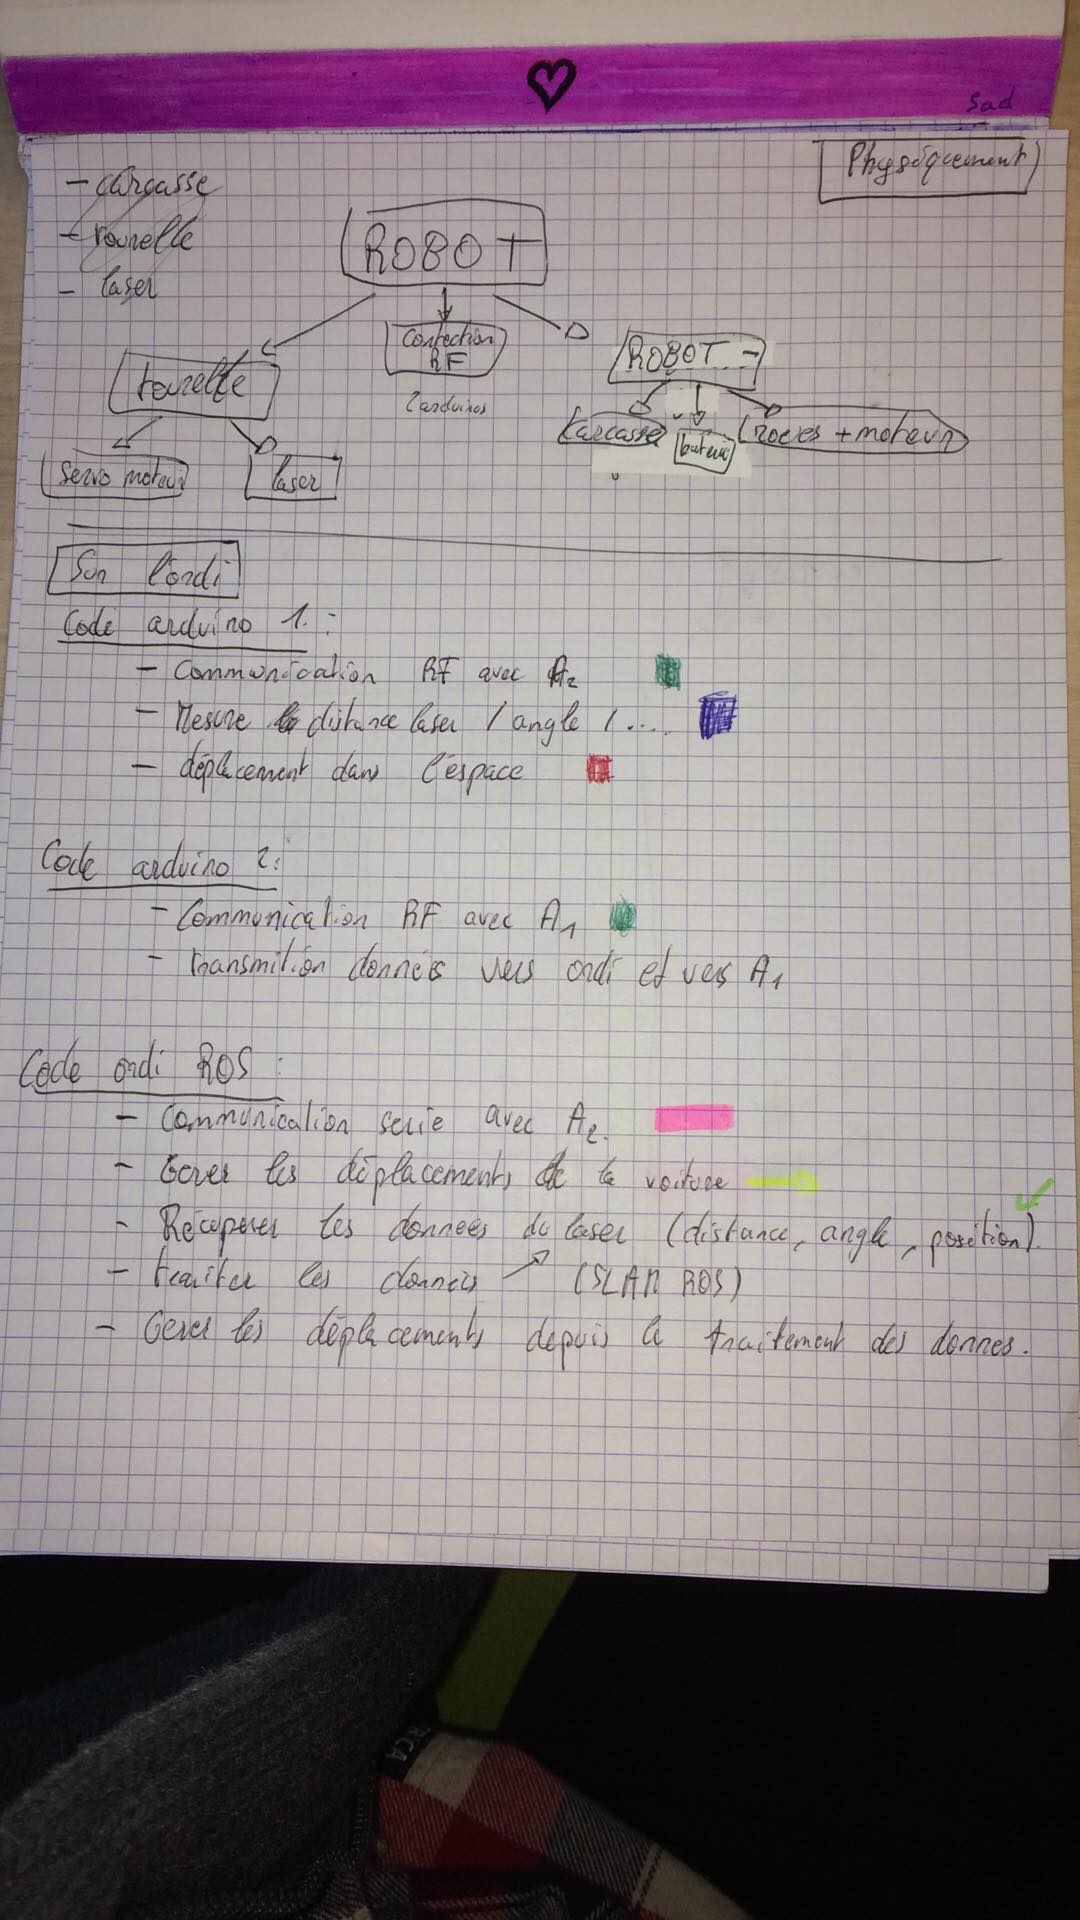 Sad
Physiquement
- carcasse
- tourelle
- laser
ROBOT
tourelle
Connection
RF
2 arduinos
ROBOT
servo moteur
laser
carcasse
batterie
roues + moteur
Sur l'ordi
Code arduino 1 :
- Communication RF avec A2
- Mesure distance laser / angle / ....
- déplacement dans l'espace
Code arduino 2:
- Communication RF avec A1
- transmition données vers ordi et vers A1
Code ordi ROS :
- Communication serie avec A2.
- Gerer les déplacements de la voiture
- Récuperer les données du laser (distance, angle, position).
- traiter les donnés (SLAM ROS)
- Gerer les déplacements depuis le traitement des donnes.
RCA